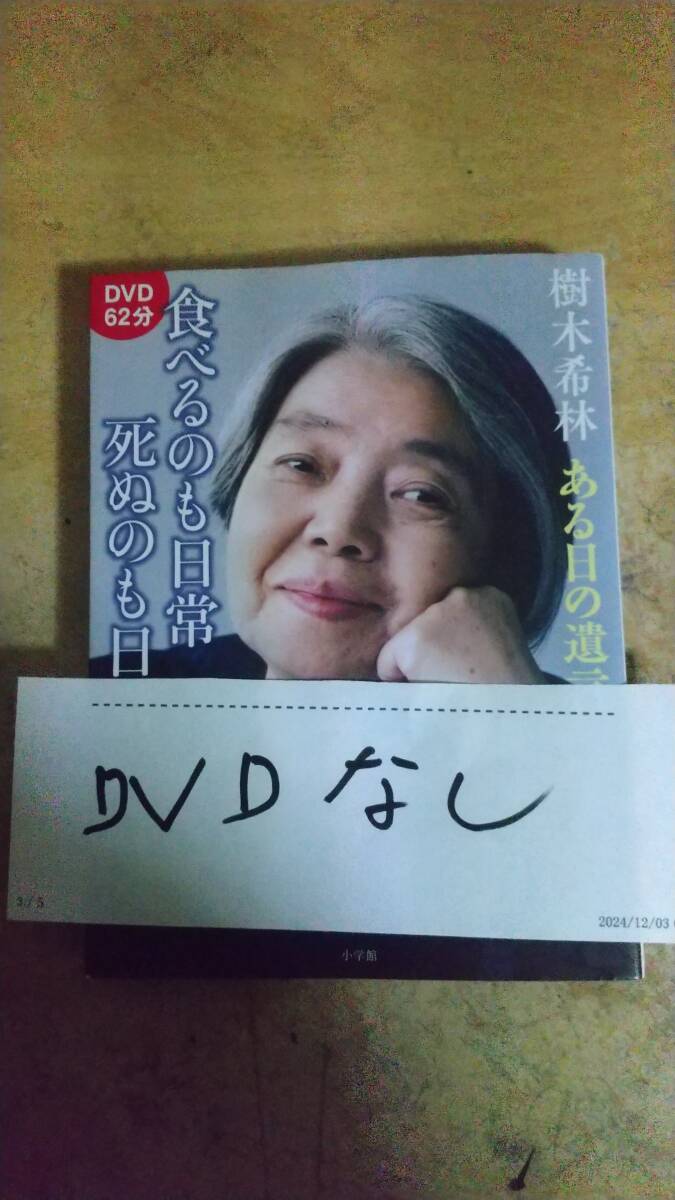 DVD
62分
樹木希林 ある日の遺
食べるのも日常
死ぬのも日
DVD なし
3/5
2024/12/03
小学館